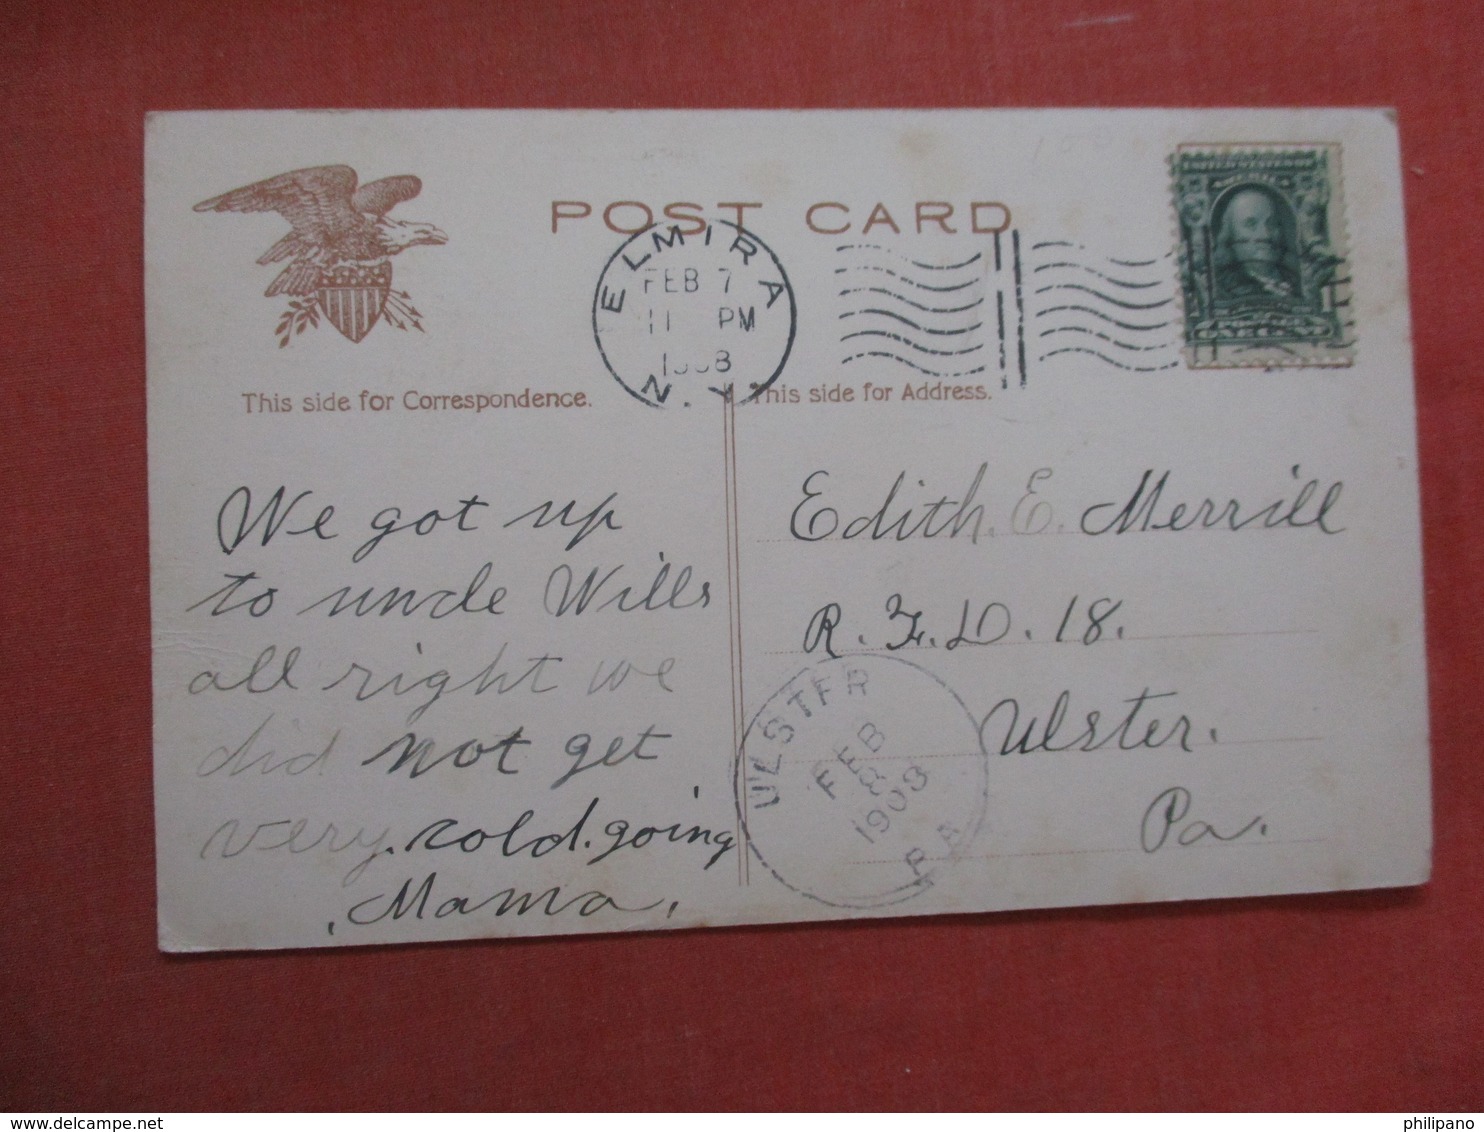 POST CARD
ELMIRA
FEB 7
11 PM
1908
N.Y.
UNITED STATES OF
AMERICA
ONE CENT
This side for Correspondence.
This side for Address.
We got up
to uncle Wills
all right we
did not get
very.cold.going
,Mama,
Edith.E.Merrill
R.F.D.18.
Ulster.
Pa.
ULSTER
FEB
8
1908
PA
www.delcampe.net
philipano